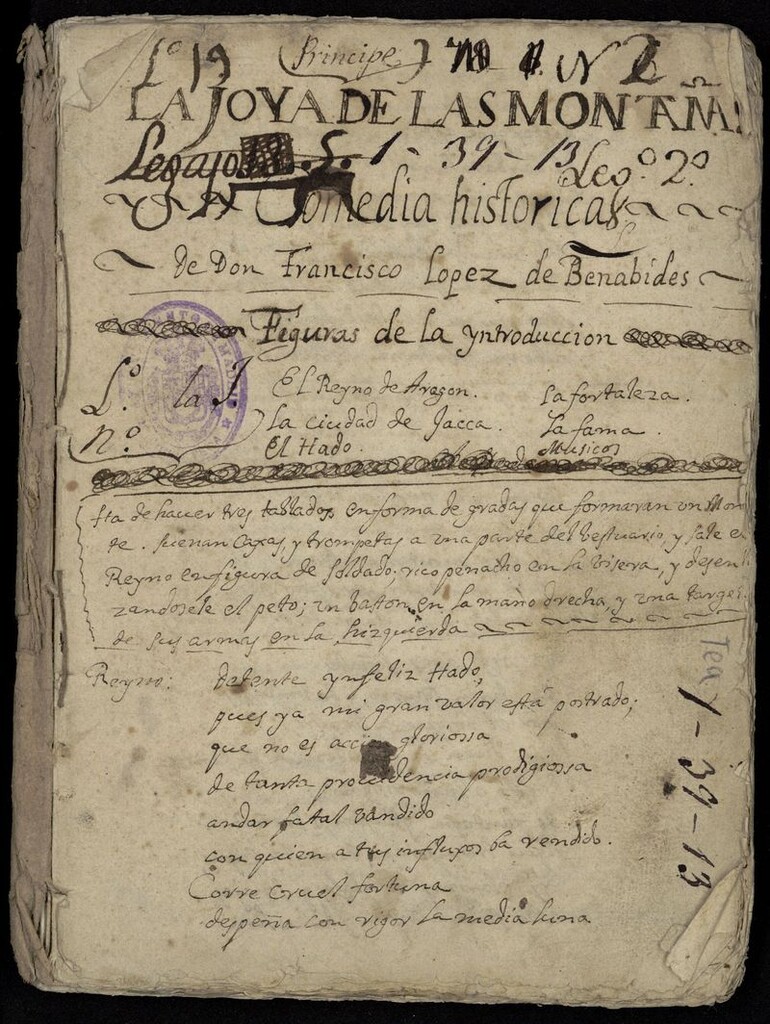 Lº 19 (Principe) N 2
LA JOYA DE LAS MONTAÑAS
Legajo 5. 1-39-13 Legº 2º
Comedia historica
de Don Francisco Lopez de Benabides
Figuras de la yntroduccion
Lº la J.
nº
El Reyno de Aragon. La fortaleza.
La ciudad de Jacca. La fama.
El Hado. Musicos
Ha de hauer tres tablados en forma de gradas que formaran un Mon
te. suenan Caxas, y trompetas a una parte del bestuario, y sale el
Reyno en figura de Soldado, rico penacho en la bisera, y desen
zandosele el peto; un baston en la mano drecha, y una targe
de sus armas en la hizquierda
Reyno: Detente ynfeliz Hado,
pues ya mi gran valor está postrado;
que no es accion gloriossa
de tanta prouidencia prodigiossa
andar fatal vandido
con quien a tus influxos ba rendido.
Corre cruel fortuna
despeña con rigor la media luna
Tea 1-39-13